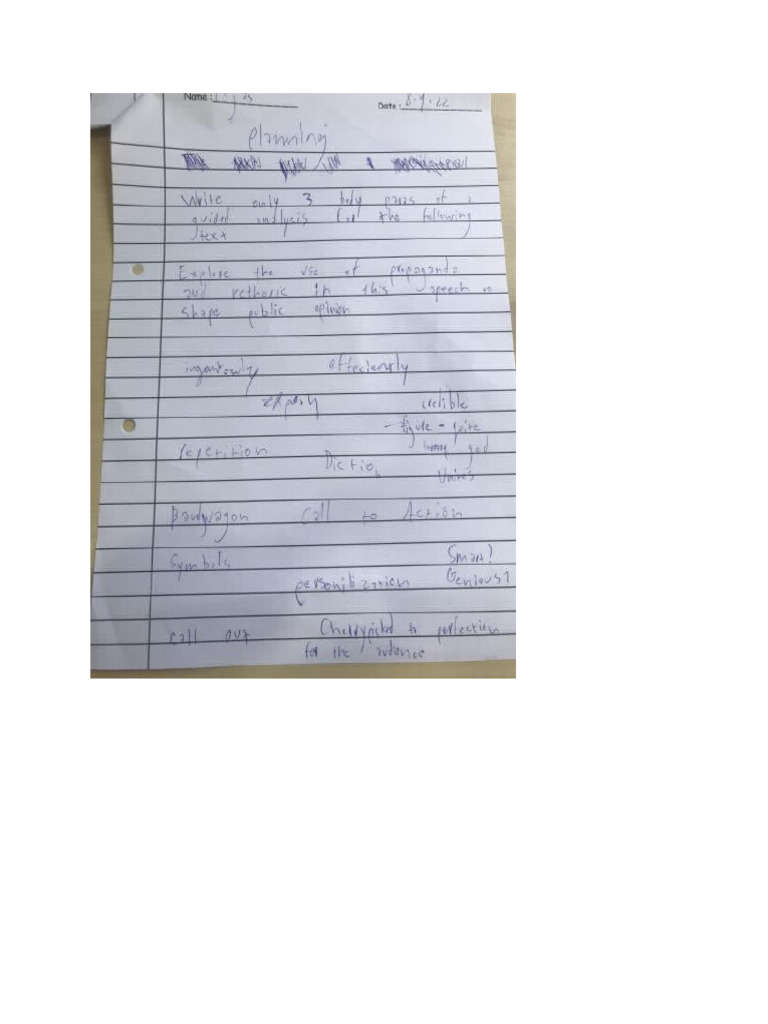 Name :
Date : 8.9.22
Planning
Write only 3 body paras of a
guided analysis for the following
text
Explore the use of propaganda
and rethoric in this speech to
shape public opinion
effeciently
credible
- figure - spite
god
repetition
Diction
Unites
Bandwagon Call to Action
Symbols
Smart?
personibization Genious?
Call out Cherrypicked to perfection
for the audience